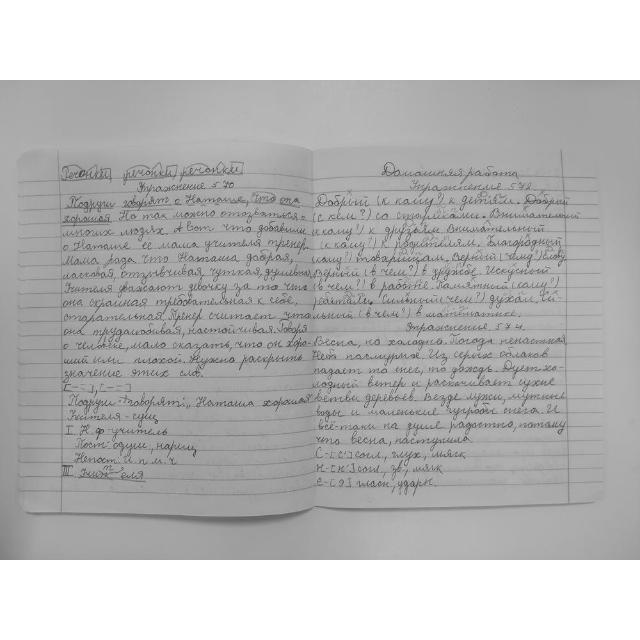 Речонки речонки речонки
Упражнение 570
Подруги говорят о Наташе, что она
хорошая. Но так можно отозваться о
многих людях. А вот что добавили
о Наташе ее мама учителя тренер.
Мама рада что Наташа добрая,
ласковая, отзывчивая, чуткая, душевная.
Учителя уважают девочку за то что
она скромная требовательная к себе,
старательная. Тренер считает что
она трудолюбивая, настойчивая. Говоря
о человеке, мало сказать, что он хоро-
ший или плохой. Нужно раскрыть
значение этих слов.
[– =], [– =]
Подруги говорят: „Наташа хорошая
Учителя - сущ
I. Н.ф - учитель
Пост: одуш., нариц
Непост: И.п. м.ч
III.
Домашняя работа
Упражнение 572
Добрый (к кому?) к детям. Добрый
(с кем?) со
Внимательный
(к кому?) к друзьям Внимательный
(к кому?) к родителям. Благородный
товарищам. Верный
Верный (в чем?) в дружбе. Искусный
(в чем?) в работе. Памятный (кому?)
Сильный (чем?) духом, Си-
льный (в чем?) в математике.
Упражнение 574.
Весна, но холодно. Погода ненастная
Небо пасмурное. Из серых облаков
падает то снег, то дождь. Дует хо-
лодный ветер и раскачивает сухие
ветви деревьев. Везде лужи,
воды и маленькие сугробы снега. И
всё-таки на душе радостно, потому
что весна, наступила.
С-[с'] согл, глух, мягк
Н-[н'] согл, зв, мягк
е-[э] гласн, ударн.